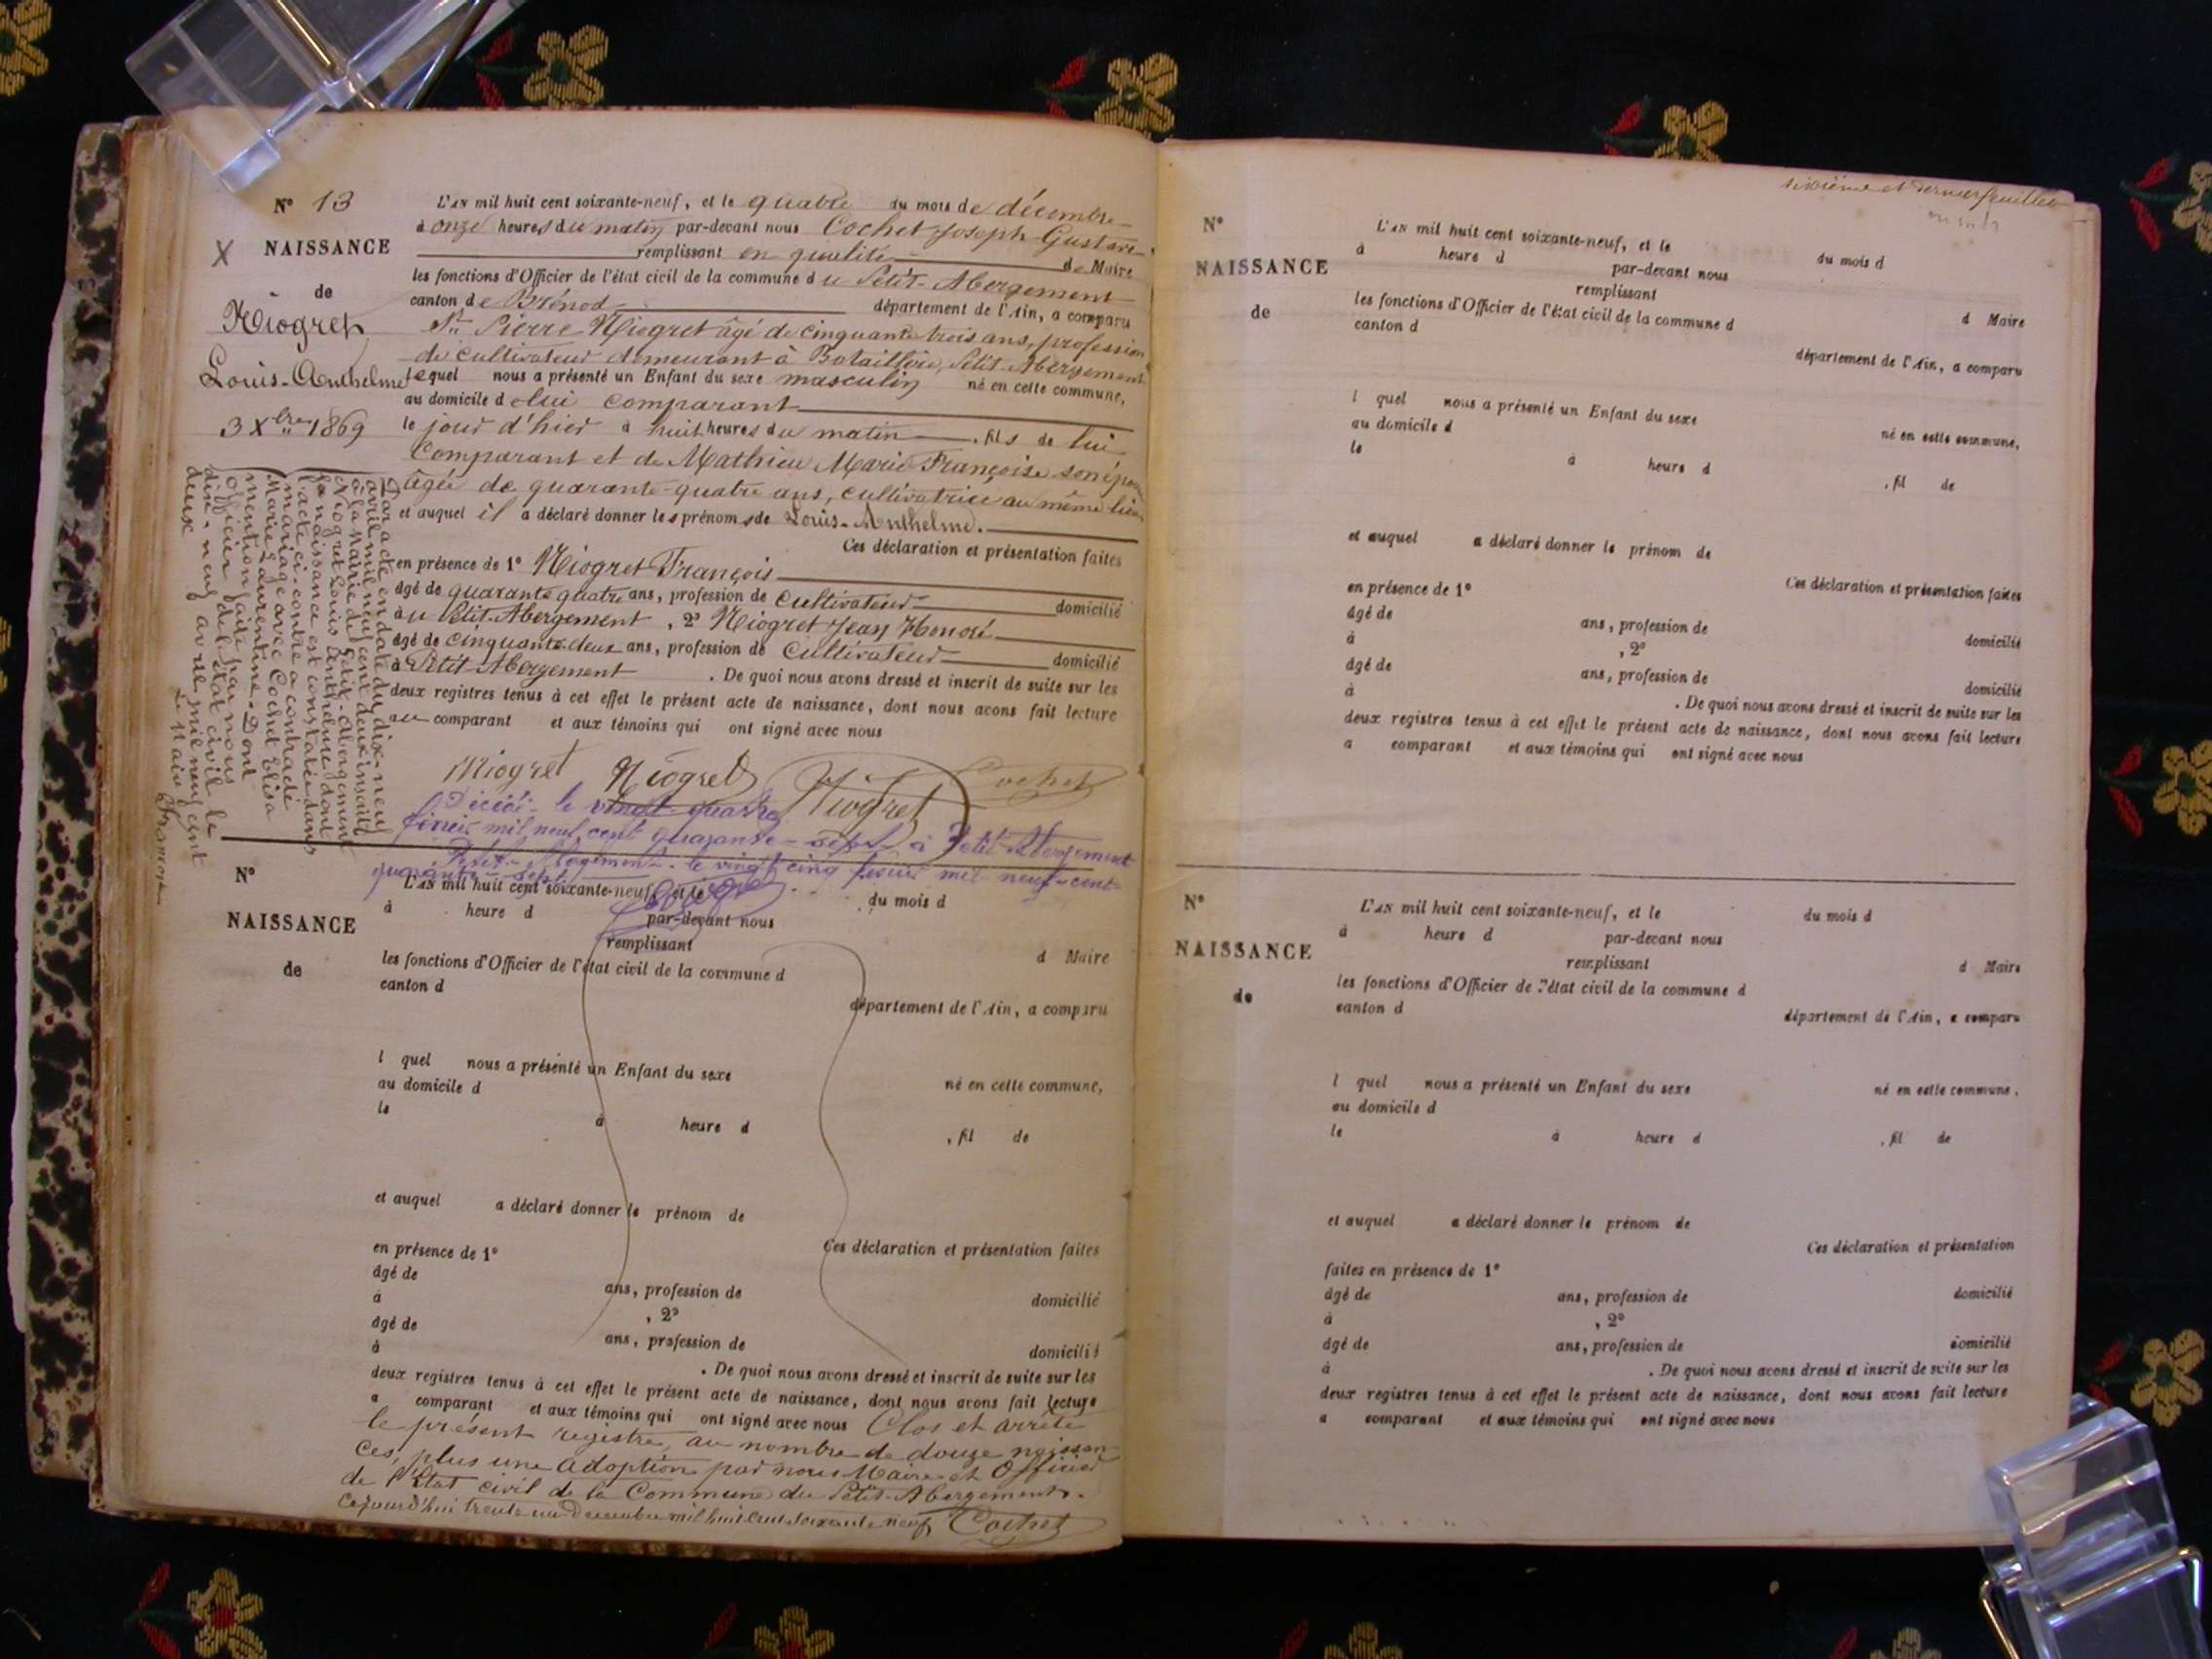 N° 13
NAISSANCE
de
Niogret
Louis-Anthelme
3 Xbre 1869
L'AN mil huit cent soixante-neuf, et le quatre du mois de décembre
à onze heures du matin par-devant nous Cochet Joseph Gustave
remplissant en qualité de Maire
les fonctions d'Officier de l'état civil de la commune du Petit-Abergement
canton de Brénod département de l'Ain, a comparu
Sr Pierre Niogret âgé de cinquante trois ans, profession
de cultivateur demeurant à Bataillère, Petit-Abergement
lequel nous a présenté un Enfant du sexe masculin né en cette commune,
au domicile de lui comparant
le jour d'hier à huit heures du matin, fils de lui
Comparant et de Mathieu Marie Françoise son épouse
âgée de quarante-quatre ans, cultivatrice au même lieu
et auquel il a déclaré donner les prénoms de Louis-Anthelme.
Ces déclaration et présentation faites
en présence de 1° Niogret François
âgé de quarante quatre ans, profession de Cultivateur domicilié
au Petit-Abergement, 2° Niogret Jean Honoré
âgé de cinquante-deux ans, profession de Cultivateur domicilié
à Petit-Abergement. De quoi nous avons dressé et inscrit de suite sur les
deux registres tenus à cet effet le présent acte de naissance, dont nous avons fait lecture
au comparant et aux témoins qui ont signé avec nous
Niogret Niogret Niogret Cochet
Par acte en date du dix-neuf
avril mil neuf cent deux inscrit
à la Mairie de Petit-Abergement
Niogret Louis Anthelme dont
la naissance est constatée dans
l'acte ci-contre a contracté
mariage avec Cochet Elisa
Marie Laurentine. Dont
mention faite par nous
Officier de l'Etat civil le
dix-neuf avril mil neuf cent
deux
Le Maire
Décédé le vingt-quatre
février mil neuf cent quarante-sept à Petit-Abergement
Petit-Abergement. le vingt cinq février mil neuf-cent-
quarante-sept
N°
NAISSANCE
de
L'AN mil huit cent soixante-neuf, et le du mois d
à heure d par-devant nous
remplissant d Maire
les fonctions d'Officier de l'état civil de la commune d
canton d département de l'Ain, a comparu
l quel nous a présenté un Enfant du sexe né en cette commune,
au domicile d
le à heure d , fil de
et auquel a déclaré donner le prénom de
Ces déclaration et présentation faites
en présence de 1°
âgé de ans, profession de domicilié
à , 2°
âgé de ans, profession de domicilié
à . De quoi nous avons dressé et inscrit de suite sur les
deux registres tenus à cet effet le présent acte de naissance, dont nous avons fait lecture
a comparant et aux témoins qui ont signé avec nous Clos et arrêté
le présent registre, au nombre de douze naissan
ces, plus une adoption par nous Maire et Officier
de l'Etat civil de la Commune du Petit-Abergement.
Cejourd'hui trente un Décembre mil huit cent soixante neuf Cochet
sixième et dernier feuillet
N°
NAISSANCE
de
L'AN mil huit cent soixante-neuf, et le du mois d
à heure d par-devant nous
remplissant d Maire
les fonctions d'Officier de l'état civil de la commune d
canton d département de l'Ain, a comparu
l quel nous a présenté un Enfant du sexe né en cette commune,
au domicile d
le à heure d , fil de
et auquel a déclaré donner le prénom de
Ces déclaration et présentation faites
en présence de 1°
âgé de ans, profession de domicilié
à , 2°
âgé de ans, profession de domicilié
à . De quoi nous avons dressé et inscrit de suite sur les
deux registres tenus à cet effet le présent acte de naissance, dont nous avons fait lecture
a comparant et aux témoins qui ont signé avec nous
N°
NAISSANCE
de
L'AN mil huit cent soixante-neuf, et le du mois d
à heure d par-devant nous
remplissant d Maire
les fonctions d'Officier de l'état civil de la commune d
canton d département de l'Ain, a comparu
l quel nous a présenté un Enfant du sexe né en cette commune,
au domicile d
le à heure d , fil de
et auquel a déclaré donner le prénom de
Ces déclaration et présentation
faites en présence de 1°
âgé de ans, profession de domicilié
à , 2°
âgé de ans, profession de domicilié
à . De quoi nous avons dressé et inscrit de suite sur les
deux registres tenus à cet effet le présent acte de naissance, dont nous avons fait lecture
a comparant et aux témoins qui ont signé avec nous